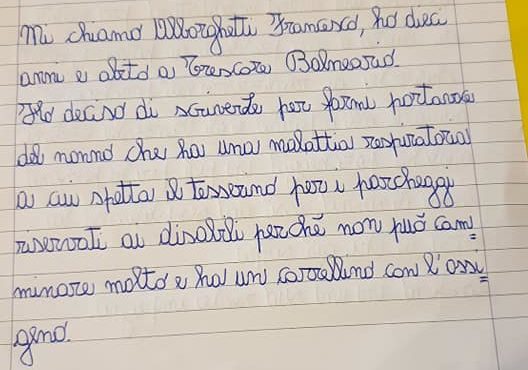 Mi chiamo Alborghetti Francesco, ho dieci
anni e abito a Trescore Balneario.
Ho deciso di scriverle per farmi portavoce
del nonno che ha una malattia respiratoria
a cui spetta il tesserino per i parcheggi
riservati ai disabili perchè non può cam
minare molto e ha un carrellino con l'ossi
geno.